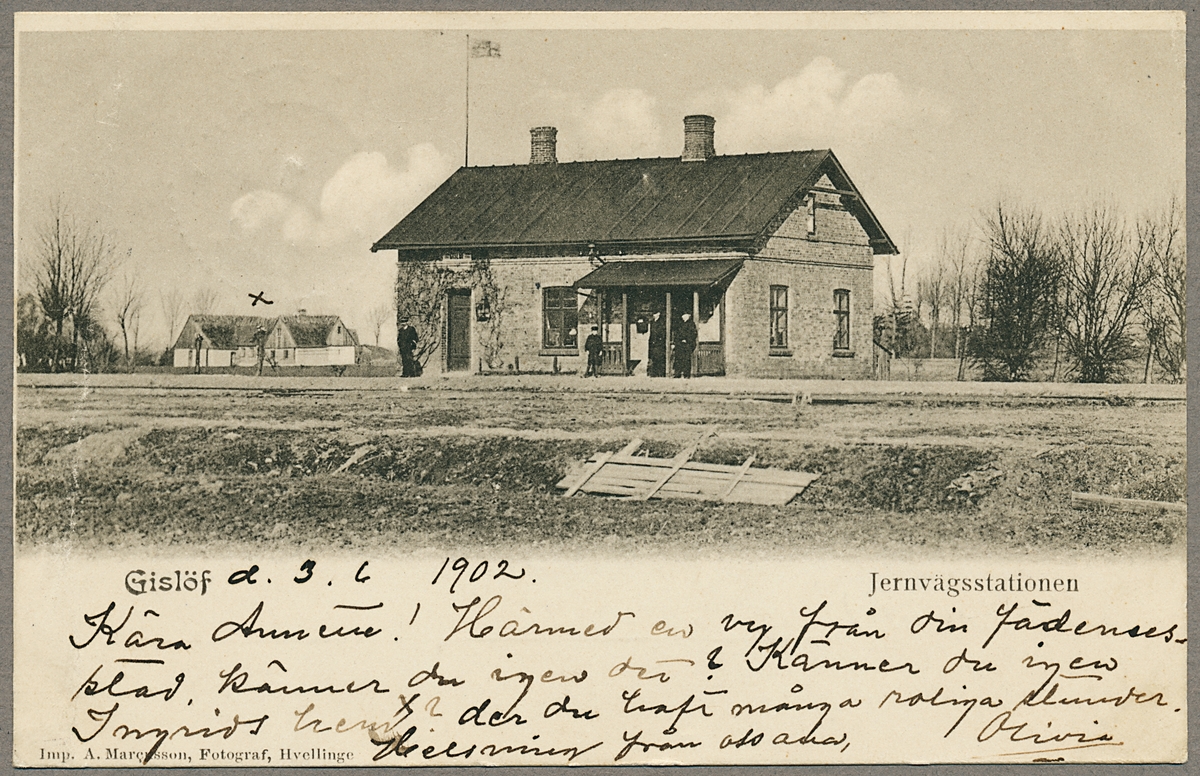 Gislöf d. 3. 6 1902.
Jernvägsstationen
Kära Annette! Härmed en vy från din fädenses-
stad, känner du igen det? Känner du igen
Ingrids hem x? der du haft många roliga stunder.
Helsning från oss alla, Olivia
Imp. A. Marcusson, Fotograf, Hvellinge
x